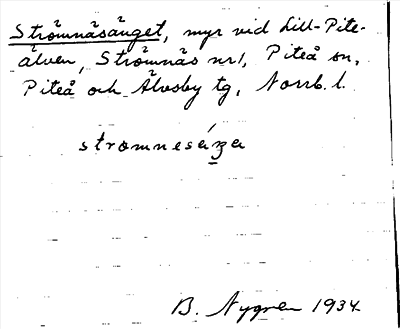 Strömnäsänget, myr vid Lill-Pite-
älven, Strömnäs nr 1, Piteå sn,
Piteå och Älvsby tg, Norrb. l.
B. Nygren 1934